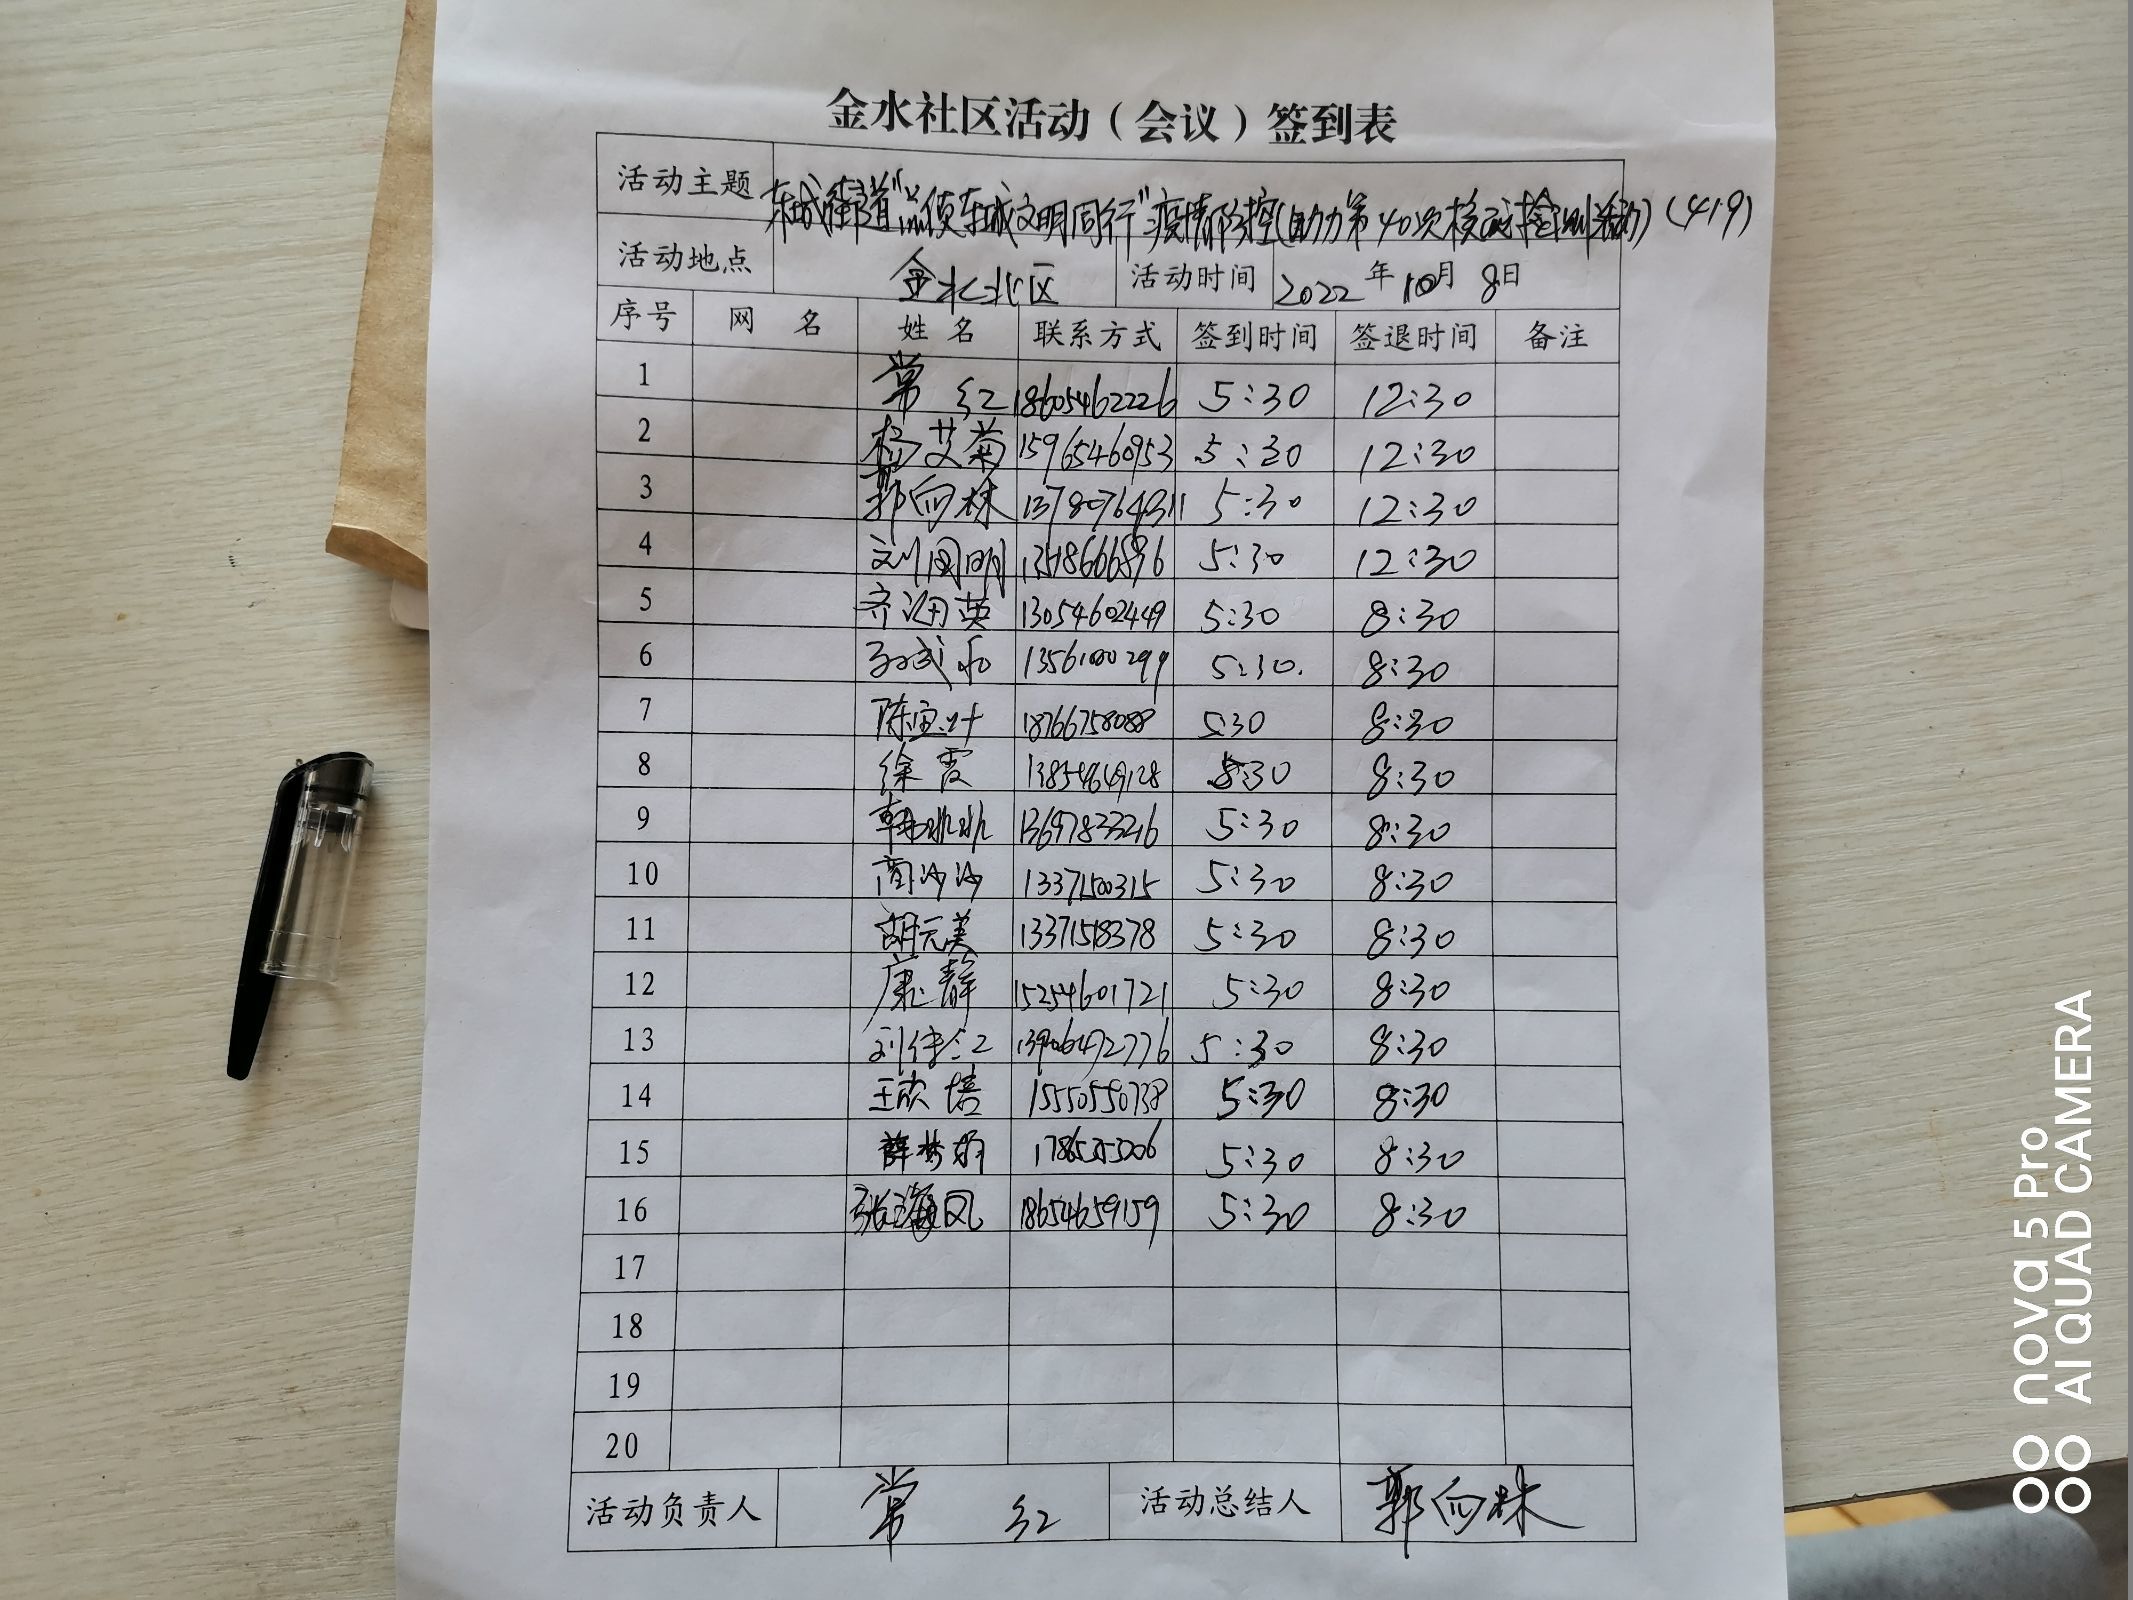 金水社区活动（会议）签到表
活动主题 东城街道""疫情防控(助力第40次核酸检测活动)(419)
活动地点 金水北区 活动时间 2022年10月8日
序号 网 名 姓 名 联系方式 签到时间 签退时间 备注
1 常 红 18605462226 5:30 12:30
2 杨艾菊 15965460953 5:30 12:30
3 郭向林 13780764311 5:30 12:30
4 刘国明 5:30 12:30
5 齐润英 13054602449 5:30 8:30
6 13561000299 5:30. 8:30
7 陈宝叶 18766758088 5:30 8:30
8 徐霞 13854649128 5:30 8:30
9 韩 13697833216 5:30 8:30
10 商沙沙 13371500315 5:30 8:30
11 胡元美 13371518378 5:30 8:30
12 康静 15254601721 5:30 8:30
13 13906472776 5:30 8:30
14 王欣培 15550550738 5:30 8:30
15 薛梦娟 5:30 8:30
16 张海凤 18654659159 5:30 8:30
17
18
19
20
活动负责人 常 红 活动总结人 郭向林
nova 5 Pro
AI QUAD CAMERA